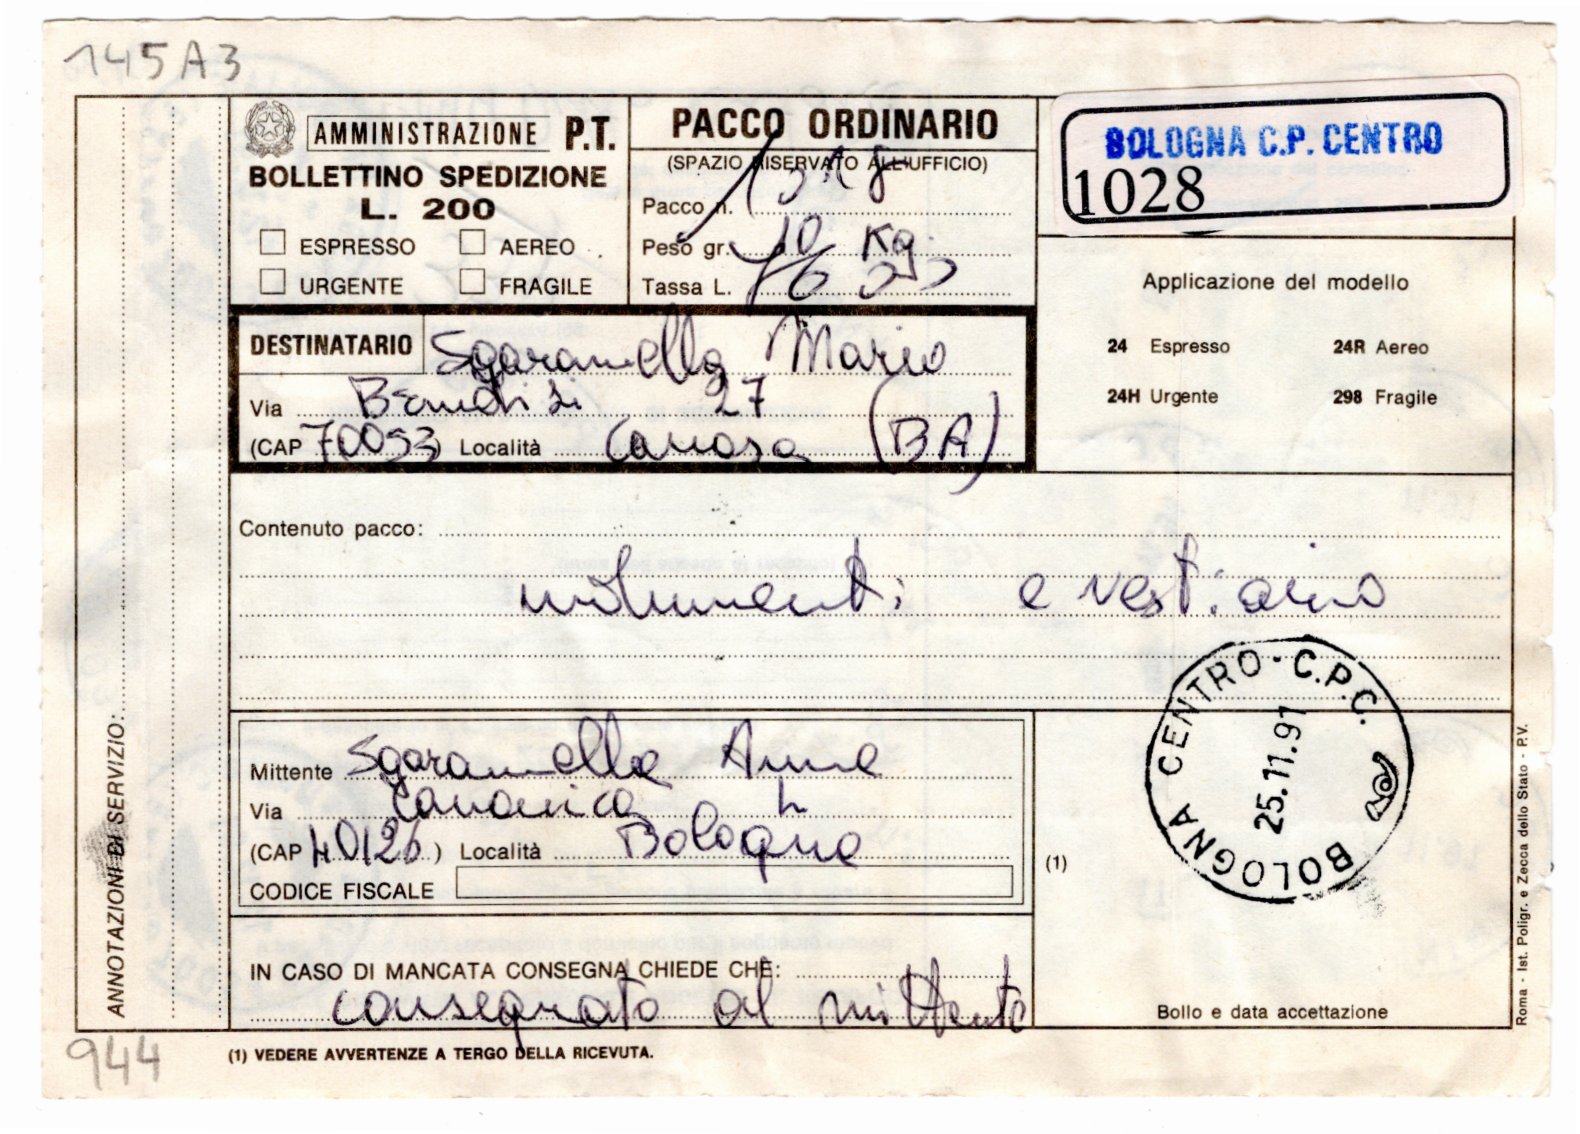 145A3
AMMINISTRAZIONE P.T.
BOLLETTINO SPEDIZIONE
L. 200
ESPRESSO AEREO
URGENTE FRAGILE
PACCO ORDINARIO
(SPAZIO RISERVATO ALL'UFFICIO)
Pacco n.
Peso gr. 10 Kg.
Tassa L.
BOLOGNA C.P. CENTRO
1028
Applicazione del modello
24 Espresso 24R Aereo
24H Urgente 298 Fragile
DESTINATARIO Sgaramella Mario
Via 27
(CAP 70053) Località Canosa (BA)
Contenuto pacco:
e vestiario
Mittente Sgaramella Anna
Via Canonica
(CAP 40126) Località Bologna
CODICE FISCALE
IN CASO DI MANCATA CONSEGNA CHIEDE CHE:
consegnato al mittente
(1)
BOLOGNA CENTRO - C.P.C.
25.11.91
Bollo e data accettazione
ANNOTAZIONI DI SERVIZIO:
Roma - Ist. Poligr. e Zecca dello Stato - P.V.
944
(1) VEDERE AVVERTENZE A TERGO DELLA RICEVUTA.